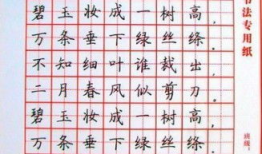 碧玉妆成一树高，
万条垂下绿丝绦。
不知细叶谁裁出，
二月春风似剪刀。
碧玉妆成一树高，
万条垂下绿丝绦。
书法专用纸